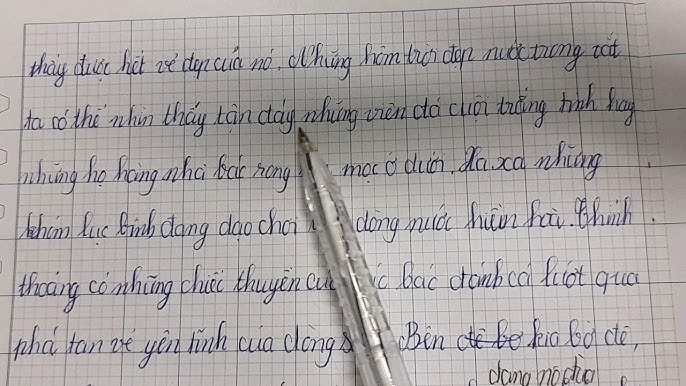 thấy được hết vẻ đẹp của nó. Những hôm trời đẹp nước trong vắt
ta có thể nhìn thấy tận đáy những viên đá cuội trắng tinh hay
những họ hàng nhà bác rong mọc ở dưới. Xa xa những
khóm lục bình đang dạo chơi dòng nước hiền hoà. Thỉnh
thoảng có những chiếc thuyền bác đánh cá lướt qua
phá tan vẻ yên tĩnh của dòng Bên kia bờ đê,